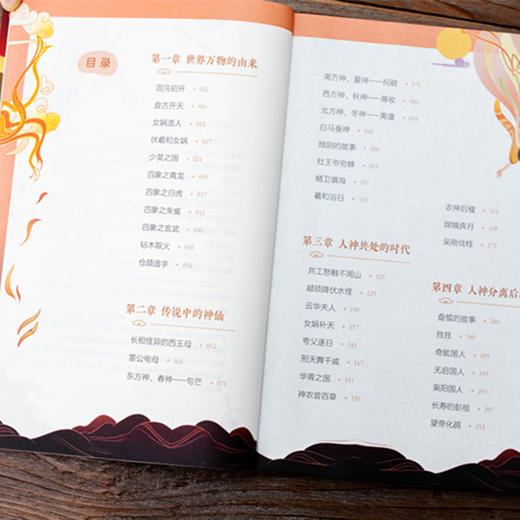 目录
第一章 世界万物的由来
混沌初开 • 002
盘古开天 • 006
女娲造人 • 012
伏羲和女娲 • 017
少昊之国 • 021
四象之青龙 • 030
四象之白虎 • 037
四象之朱雀 • 042
四象之玄武 • 046
钻木取火 • 050
仓颉造字 • 054
第二章 传说中的神仙
长相怪异的西王母 • 062
雷公电母 • 066
东方神、春神——句芒 • 071
南方神、夏神——祝融 • 076
西方神、秋神——蓐收
北方神、冬神——禺彊 • 084
白马蚕神
烛阴的故事
灶王爷穷蝉
精卫填海 • 107
羲和浴日 • 111
第三章 人神共处的时代
共工怒触不周山 • 120
颛顼降伏水怪 • 125
云华夫人
女娲补天
夸父逐日 • 141
刑天舞干戚 • 147
华胥之国 • 151
神农尝百草 • 156
农神后稷 • 161
嫦娥奔月
吴刚伐桂
第四章 人神分离后
盘瓠的故事
狌狌
奇肱国人
无启国人
枭阳国人
长寿的彭祖 • 207
望帝化鹃 • 213